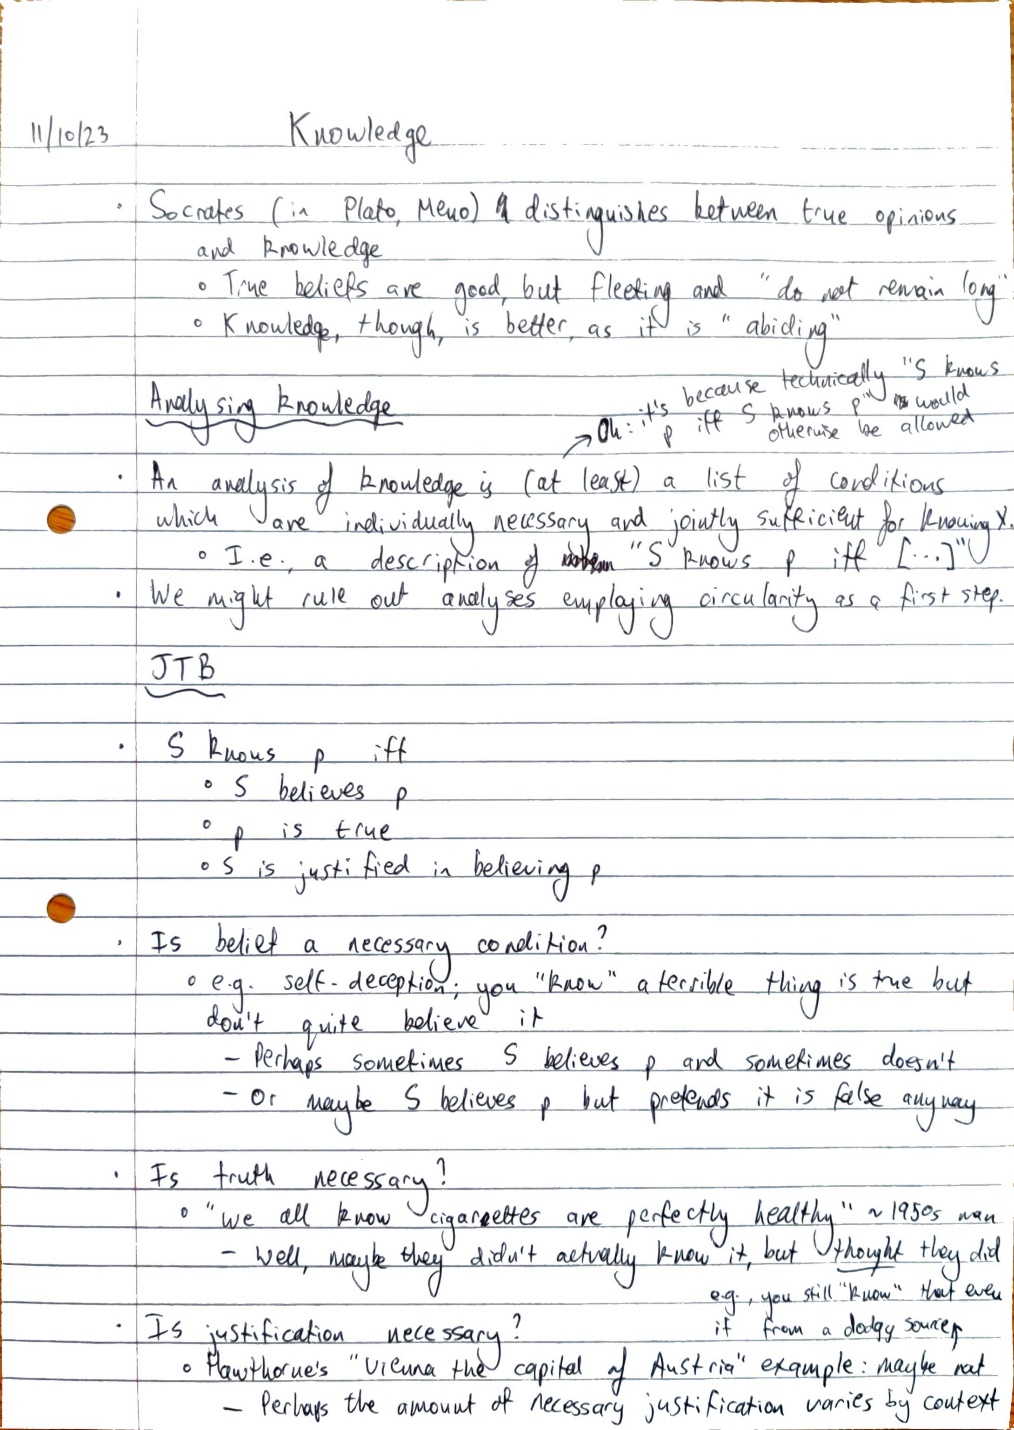 11/10/23 Knowledge
· Socrates (in Plato, Meno) distinguishes between true opinions
and knowledge
◦ True beliefs are good, but fleeting and "do not remain long"
◦ Knowledge, though, is better, as it is "abiding"
Analysing knowledge
Oh: it's because technically "S knows
p iff S knows p" would
otherwise be allowed
· An analysis of knowledge is (at least) a list of conditions
which are individually necessary and jointly sufficient for knowing X.
◦ I.e., a description of "S knows p iff [...]"
· We might rule out analyses employing circularity as a first step.
JTB
· S knows p iff
◦ S believes p
◦ p is true
◦ S is justified in believing p
· Is belief a necessary condition?
◦ e.g. self-deception; you "know" a terrible thing is true but
don't quite believe it
– Perhaps sometimes S believes p and sometimes doesn't
– Or maybe S believes p but pretends it is false anyway
· Is truth necessary?
◦ "We all know cigarettes are perfectly healthy" ~ 1950s man
– Well, maybe they didn't actually know it, but thought they did
e.g., you still "know" that even
if from a dodgy source
· Is justification necessary?
◦ Hawthorne's "Vienna the capital of Austria" example: maybe not
– Perhaps the amount of necessary justification varies by context